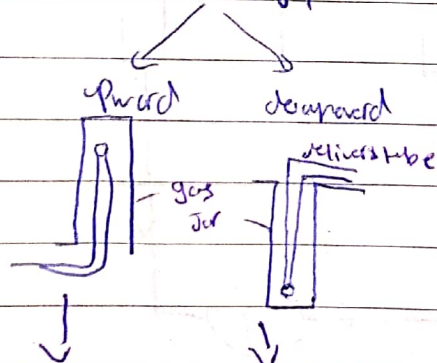 upward downward
delivery tube
gas
Jar